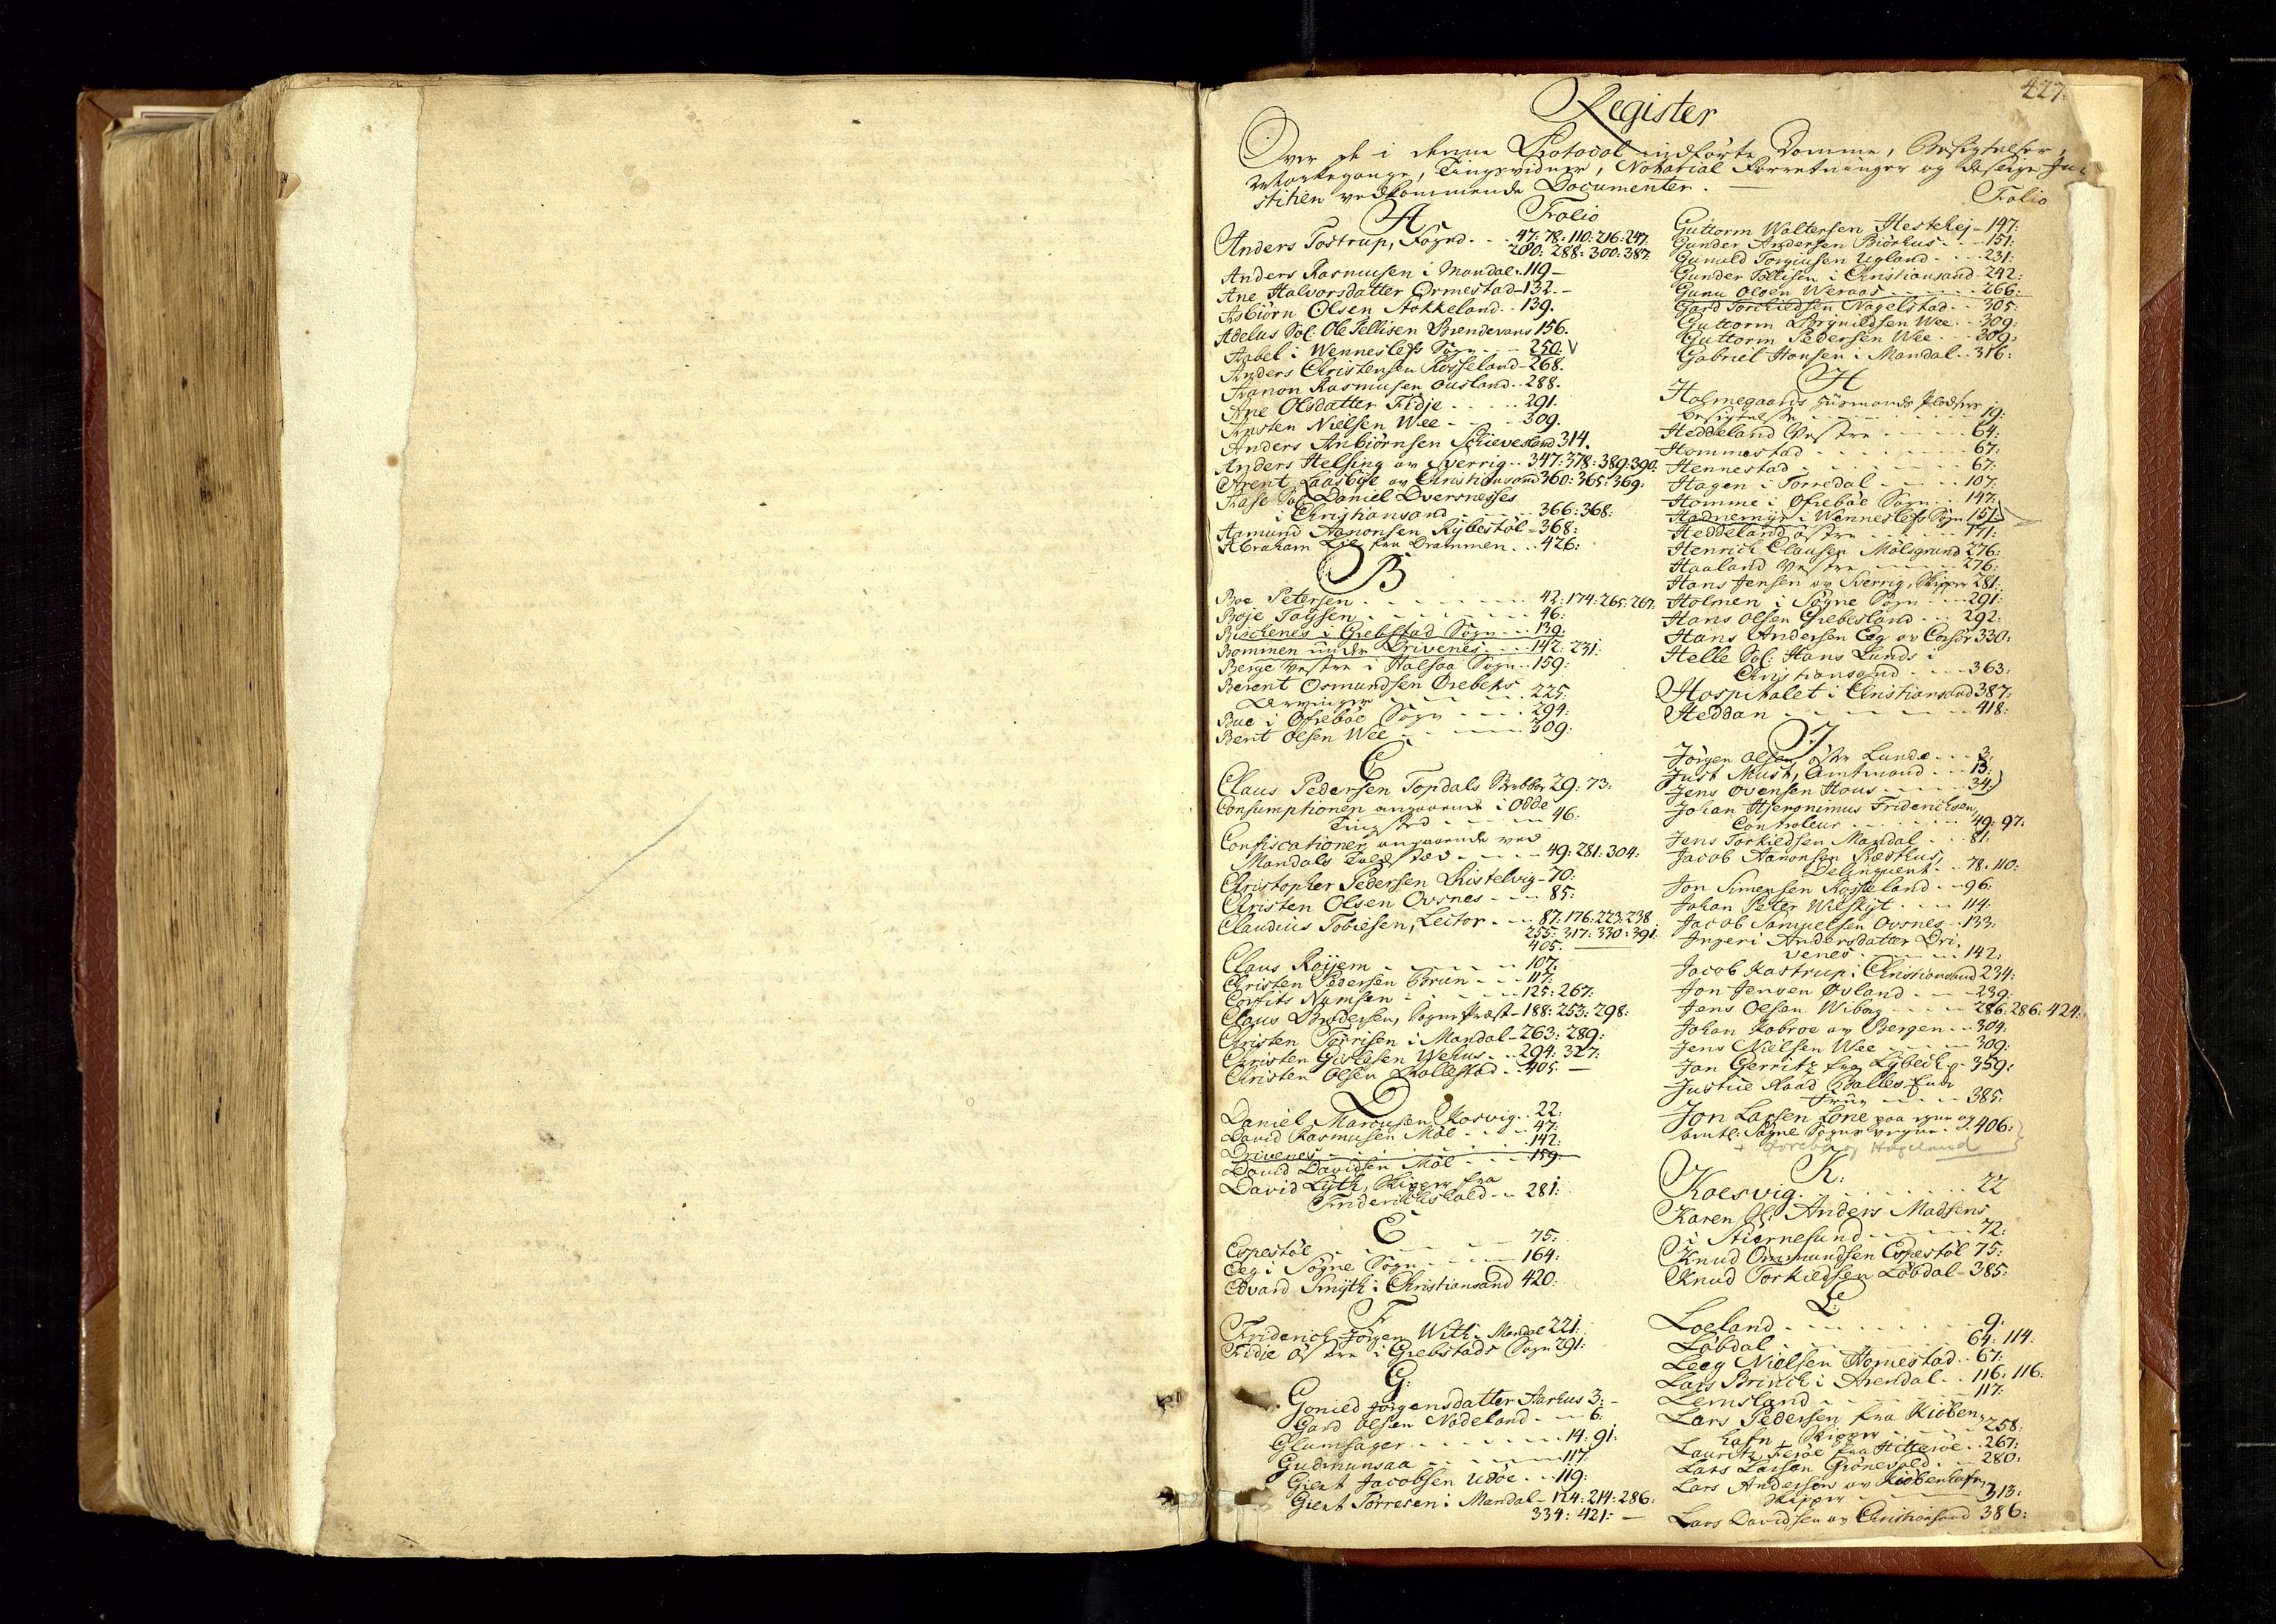 427.
Register
Over de i denne Protocol indførte Domme, Besigtelser,
Tingsvidner, Notarial Forretninger og deslige Ju-
stitien vedkommende Documenter. —
A Folio
Anders Tostrup, Fogd. . . 47: 78: 110: 216: 247:
280: 288: 300: 387:
Anders Rasmusen i Mandal . 119 —
Ane Halvorsdatter Ormestad — 132. —
Asbiørn Olsen Stokkeland . . 139.
Adelus Sal: Ole Tellisen Brendevans 156.
Aabel i Wennesleps Sogn - - - 250. V
Anders Christensen Rosseland - 268.
Aanon Rasmusen Ousland . . 288.
Ane Olsdatter Fidje . . . . . 291.
Ansten Nielsen Wee - - - - 309.
Anders Anbiørnsen Schievesland 314.
Anders Helsing av Sverrig . . 347: 378: 389: 390.
Arent Laasbye av Christiansand 360: 365: 369:
Aase Sal. Daniel Dversnesses
i Christiansand . . . . . 366: 368:
Aamund Aanonsen Rybestøl - 368:
Abraham fra Drammen . . . 426:
B
Boe Petersen . . . . . . . 42: 174: 265: 267:
Boje Taysen . . . . . . . 46:
Bischenes i Grebstad Sogn . . . 139.
Bommen under Drivenes . . . 142: 231:
Berge Vestre i Halsaa Sogn . . 159:
Berent Osmundsen Orebeks
Arvinger . . . . . . 225:
Bue i Ofrebøe Sogn . . . . 294:
Bent Olsen Wee - - - - 309:
C
Claus Pedersen Topdals 29: 73:
Consumptionen angaaende i Odde
Tingsted . . . . . . 46:
Confiscationer angaaende ved
Mandals Toldsted . . . . 49: 281: 304:
Christopher Pedersen Kistelvig - 70:
Christen Olsen Ovsnes - - - 85:
Claudius Tobiesen, Lector . . . 87: 176: 223: 238
255: 317: 330: 391:
405. —
Claus Royem . . . . . . 107:
Christen Pedersen Brun - - - 117:
Corfits Nymsen . . . . . . 125: 267:
Claus Brodersen, Sognepræst - 188: 253: 298:
Christen Tørrisen i Mandal - 263: 289:
Christen Giertsen Wehus . . . 294: 327:
Christen Olsen Bollestad . . 405. —
D
Daniel Marcusen Kosvig . . 22:
David Rasmusen Møl . . . . 47:
Drivenes . . . . . . . 142:
David Davidsen Møl . . . . 159:
David Lyth, Skipper fra
Friderichshald . . 281:
E
Espestøl . . . . . . . 75:
Eeg i Søgne Sogn . . . . 164:
Edvard Smyth i Christiansand 420:
F
Friderich Jørgen With i Mandal 221:
Fidje østre i Grebstads Sogn 291:
G:
Gonild Jørgensdatter Aarhus 3: —
Gard Olsen Nodeland - - - 6:
Glumsager . . . . . . . 14: 91:
Gudmunsaa . . . . . . 117:
Giert Jacobsen Udøe . . . 119:
Giert Tørresen i Mandal - 124: 214: 286:
334: 421: —
Folio
Guttorm Woltersen Hestehej - 147:
Gunder Andersen Biørhus . . . 151:
Gunuld Torgiusen Ugland . . . 231:
Gunder Tollisen i Christiansand - 242:
Gunu Olsen Weraas . . . . . 266:
Gard Torkieldsen Nagelstad . . 305:
Guttorm Brynildsen Wee . . 309:
Guttorm Pedersen Wee . . . 309:
Gabriel Hansen i Mandal . . 316:
H
Holmegaards Huusmands Pladses
besigtelse . . . . . . . 19:
Heddeland Vestre . . . . . 64:
Hommestad . . . . . . . 67:
Hennestad . . . . . . . 67:
Hagen i Torredal . . . . . 107:
Homme i Ofrebøe Sogn . . . 147:
Hadnemyr i Wennesleps Sogn 151:
Heddeland østre . . . . . 171:
Henrich Clausen Mølsgrund 276:
Haaland Vestre . . . . . 276:
Hans Jensen av Sverrig, Skipper 281:
Holmen i Søgne Sogn . . . 291:
Hans Olsen Grebesland . . 292:
Hans Andersen Eeg av Corsør 330:
Helle Sal: Hans Lunds i
Christiansand . . . . 363:
Hospitalet i Christiansand 387:
Heddan . . . . . . . 418:
J
Jørgen Olsen østre Lunde . . . 3:
Just Must, Amtmand . . . 13:
Jens Ovensen Hous . . . . 34:
Johan Hjeronimus Friderichsen,
Controleur . . . . . . 49: 97:
Jens Torkildsen Mandal . . . 81:
Jacob Aanonsen Røsthus,
Delinquent . . 78. 110:
Jon Simensen Rosseland . . 96:
Johan Peter Wilskyt . . . 114:
Jacob Samuelsen Ovsnes . . 133:
Ingeri Andersdatter Dri-
venes . . . . . . 142:
Jacob Kastrup i Christiansand 234:
Jon Jensen Øvland . . . 239:
Jens Olsen Wiborg . . . . 286: 286: 424:
Johan Kobroe av Bergen . . 304:
Jens Nielsen Wee . . . . 309:
Jan Gerritz fra Lybech . . 359:
Justice Raad Balles
Frue . . . . 385:
Jon Larsen Lone paa egne og
Søgne Sogns vegne . . 406:
Høgeland
K:
Koesvig . . . . . . . . 22
Karen Sl: Anders Madsens
i Stiernesund . . . . . 72:
Knud Ommundsen Espestøl 75:
Knud Torkieldsen Løbdal - 385:
L:
Loeland . . . . . . . 9:
Løbdal . . . . . . . 64: 114:
Leeg Nielsen Homestad . . 67:
Lars Brinch i Arendal . . 116: 116:
Lemsland . . . . . . . 117:
Lars Pedersen fra Kiøben-
hafn, Skipper . . . . 258:
Lauritz Ferøe fra Hitterøe . . 267:
Lars Larsen Grønevold . . 280:
Lars Andersen av Kiøbenhafn,
Skipper . . . . . 313:
Lars Davidsen av Christiansand 386: